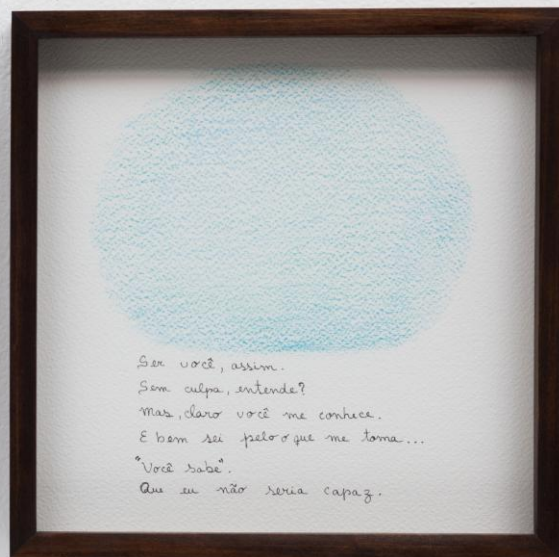 Ser você, assim.
Sem culpa, entende?
Mas, claro você me conhece.
E bem sei pelo o que me toma...
"Você sabe".
Que eu não seria capaz.